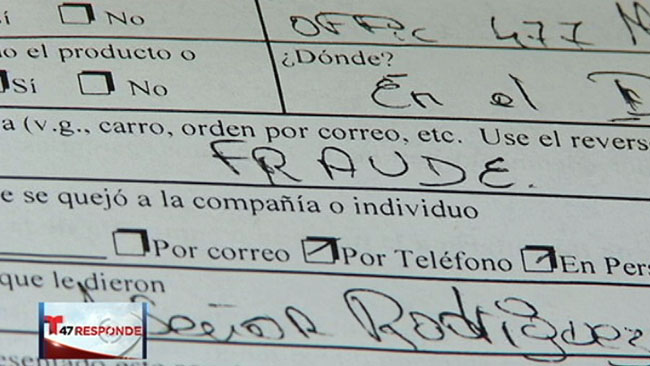 í No OFFIC 477
o el producto o ¿Dónde?
Sí No En el
a (v.g., carro, orden por correo, etc. Use el revers
FRAUDE.
e se quejó a la compañía o individuo
Por correo Por Teléfono En Pers
que le dieron
Señor Rodriguez
T 47 RESPONDE